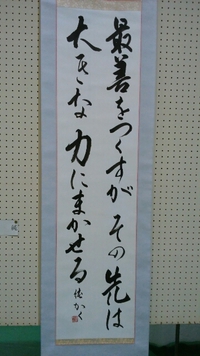 最善をつくすが その先は
大きな 力にまかせる